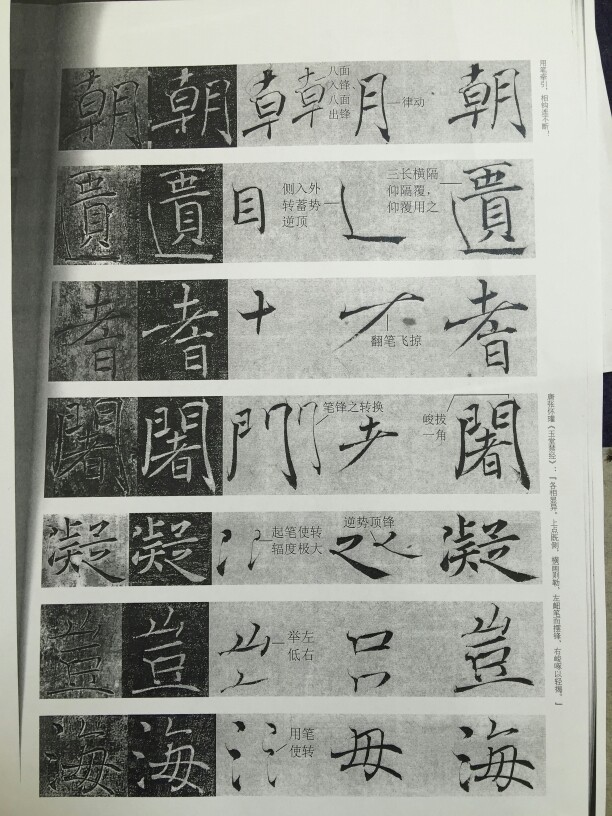 用笔牵引，相钩连不断。
朝 朝 𠦝 𠦝 月 朝
八面
入锋、
八面
出锋
律动
遺 遺 目 遺
侧入外
转蓄势
逆顶
三长横隔
仰隔覆，
仰覆用之
耆 耆 十 耆
翻笔飞掠
闍 闍 門 闍
笔锋之转换
峻拔
一角
凝 凝 冫 凝
起笔使转
辐度极大
逆势顶锋
豈 豈 山 口 豈
举左
低右
海 海 氵 毎 海
用笔
使转
唐张怀瓘《玉堂禁经》：「各相竖异，上点既侧，横画则勒，左衄笔而擢锋，右峻嶷以轻揭。」